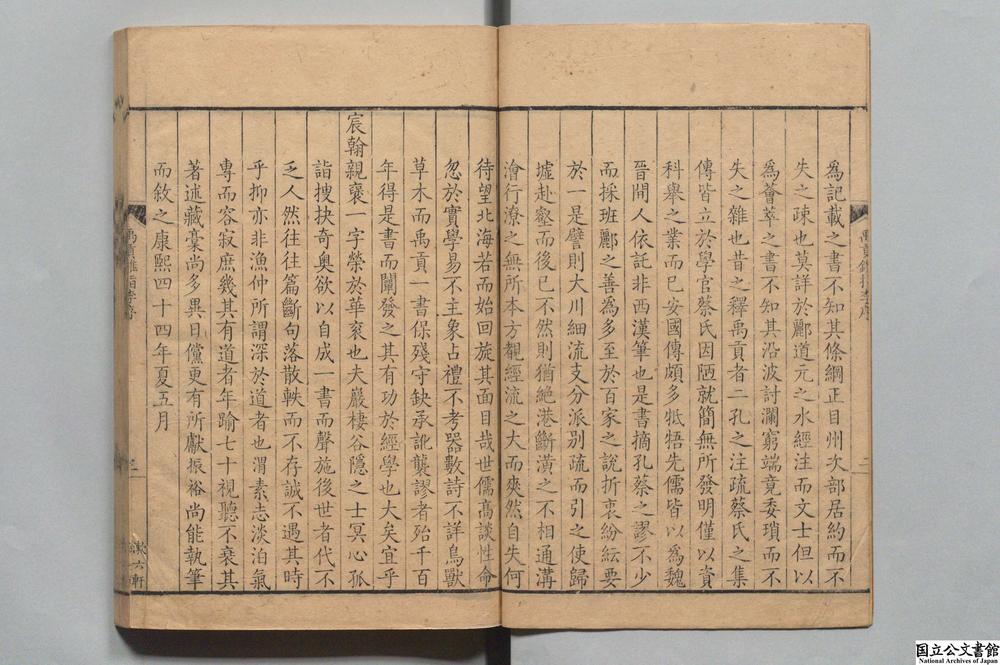 為記載之書不知其條綱正目州次部居約而不
失之疎也莫詳於酈道元之水經注而文士但以
為薈萃之書不知其沿波討瀾窮端竟委瑣而不
失之雜也昔之釋禹貢者二孔之注疏蔡氏之集
傳皆立於學官蔡氏因陋就簡無所發明僅以資
科舉之業而已安國傳頗多牴牾先儒皆以為魏
晉間人依託非西漢筆也是書摘孔蔡之謬不少
而採班酈之善為多至於百家之說折衷紛紜要
於一是譬則大川細流支分派別疏而引之使歸
墟赴壑而後已不然則猶絕港斷潢之不相通溝
澮行潦之無所本方覩經流之大而爽然自失何
待望北海若而始回旋其面目哉世儒高談性命
忽於實學易不主象占禮不考器數詩不詳鳥獸
草木而禹貢一書保殘守缺承訛襲謬者殆千百
年得是書而闡發之其有功於經學也大矣宜乎
宸翰親褒一字榮於華袞也夫巖棲谷隱之士冥心孤
詣搜抉奇奧欲以自成一書而聲施後世者代不
乏人然往往篇斷句落散軼而不存誠不遇其時
乎抑亦非漁仲所謂深於道者也渭素志淡泊氣
專而容寂庶幾其有道者年踰七十視聽不衰其
著述藏稾尚多異日儻更有所獻振裕尚能執筆
而敘之康熙四十四年夏五月
国立公文書館
National Archives of Japan